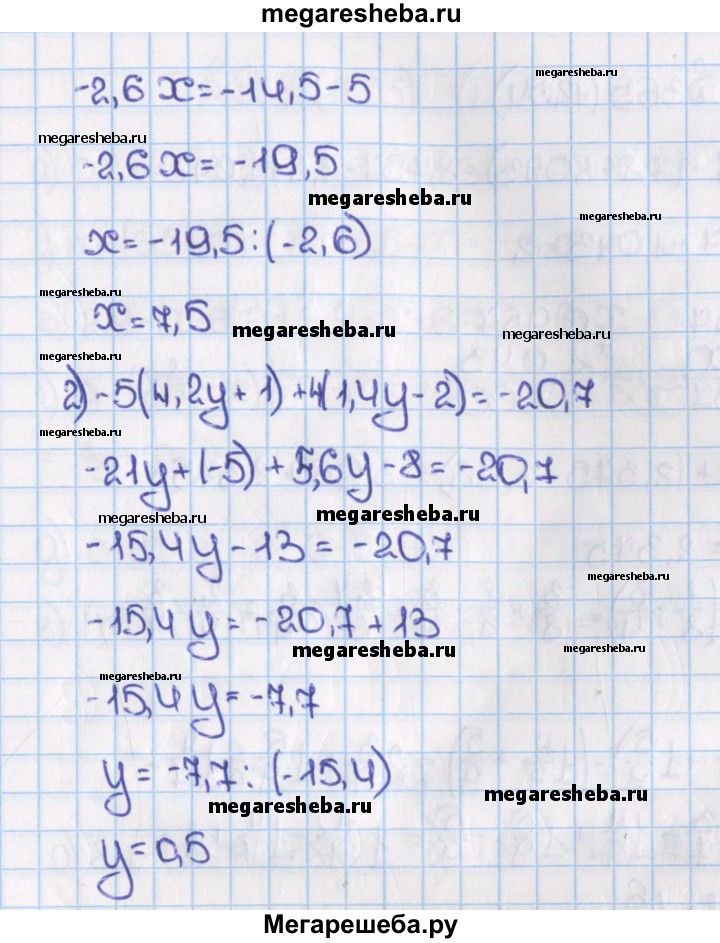 megaresheba.ru
-2,6x=-14,5-5
megaresheba.ru
megaresheba.ru
-2,6x=-19,5
megaresheba.ru
megaresheba.ru
x=-19,5:(-2,6)
megaresheba.ru
x=7,5
megaresheba.ru
megaresheba.ru
megaresheba.ru
2)-5(4,2y+1)+4(1,4y-2)=-20,7
megaresheba.ru
-21y+(-5)+5,6y-8=-20,7
megaresheba.ru
megaresheba.ru
-15,4y-13=-20,7
megaresheba.ru
-15,4y=-20,7+13
megaresheba.ru
megaresheba.ru
megaresheba.ru
-15,4y=-7,7
y=-7,7:(-15,4)
megaresheba.ru
megaresheba.ru
y=0,5
Мегарешеба.ру